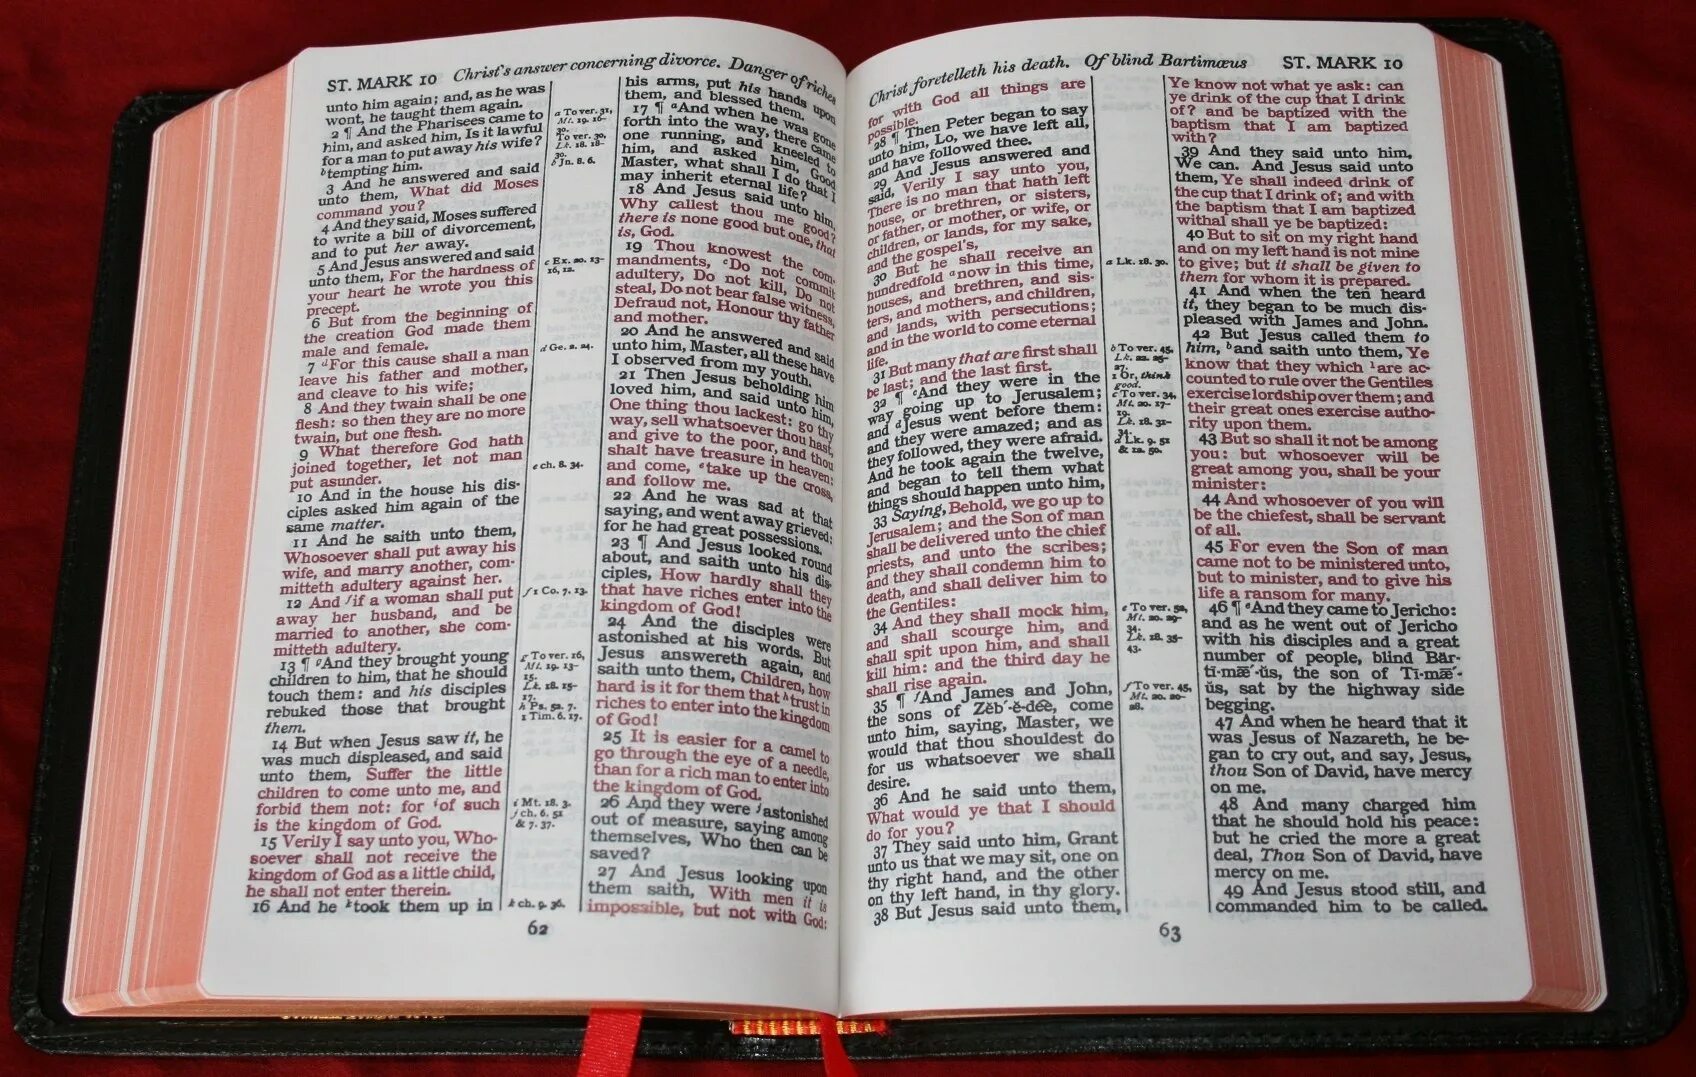 ST. MARK 10 Christ's answer concerning divorce. Danger of riches
unto him again; and, as he was
wont, he taught them again.
2 ¶ And the Pharisees came to
him, and asked him, Is it lawful
for a man to put away his wife?
b tempting him.
3 And he answered and said
unto them, What did Moses
command you?
4 And they said, Moses suffered
to write a bill of divorcement,
and to put her away.
5 And Jesus answered and said
unto them, For the hardness of
your heart he wrote you this
precept.
6 But from the beginning of
the creation God made them
male and female.
7 d For this cause shall a man
leave his father and mother,
and cleave to his wife;
8 And they twain shall be one
flesh: so then they are no more
twain, but one flesh.
9 What therefore God hath
joined together, let not man
put asunder.
10 And in the house his dis-
ciples asked him again of the
same matter.
11 And he saith unto them,
Whosoever shall put away his
wife, and marry another, com-
mitteth adultery against her.
12 And f if a woman shall put
away her husband, and be
married to another, she com-
mitteth adultery.
13 ¶ g And they brought young
children to him, that he should
touch them: and his disciples
rebuked those that brought
them.
14 But when Jesus saw it, he
was much displeased, and said
unto them, Suffer the little
children to come unto me, and
forbid them not: for i of such
is the kingdom of God.
15 Verily I say unto you, Who-
soever shall not receive the
kingdom of God as a little child,
he shall not enter therein.
16 And he k took them up in
a To ver. 31,
Mt. 19. 16-
30.
To ver. 30,
Lk. 18. 18-
30.
b Jn. 8. 6.
c Ex. 20. 13-
16, 12.
d Ge. 2. 24.
e ch. 8. 34.
f 1 Co. 7. 13.
g To ver. 16,
Mt. 19. 13-
15.
Lk. 18. 15-
17.
h Ps. 52. 7.
1 Tim. 6. 17.
i Mt. 18. 3.
j ch. 6. 51
& 7. 37.
k ch. 9. 36.
his arms, put his hands upon
them, and blessed them.
17 ¶ a And when he was gone
forth into the way, there came
one running, and kneeled to
him, and asked him, Good
Master, what shall I do that I
may inherit eternal life?
18 And Jesus said unto him,
Why callest thou me good?
there is none good but one, that
is, God.
19 Thou knowest the com-
mandments, c Do not commit
adultery, Do not kill, Do not
steal, Do not bear false witness,
Defraud not, Honour thy father
and mother.
20 And he answered and said
unto him, Master, all these have
I observed from my youth.
21 Then Jesus beholding him
loved him, and said unto him,
One thing thou lackest: go thy
way, sell whatsoever thou hast,
and give to the poor, and thou
shalt have treasure in heaven:
and come, e take up the cross,
and follow me.
22 And he was sad at that
saying, and went away grieved:
for he had great possessions.
23 ¶ And Jesus looked round
about, and saith unto his dis-
ciples, How hardly shall they
that have riches enter into the
kingdom of God!
24 And the disciples were
astonished at his words. But
Jesus answereth again, and
saith unto them, Children, how
hard is it for them that h trust in
riches to enter into the kingdom
of God!
25 It is easier for a camel to
go through the eye of a needle,
than for a rich man to enter into
the kingdom of God.
26 And they were j astonished
out of measure, saying among
themselves, Who then can be
saved?
27 And Jesus looking upon
them saith, With men it is
impossible, but not with God:
62
Christ foretelleth his death. Of blind Bartimæus ST. MARK 10
for with God all things are
possible.
28 ¶ Then Peter began to say
unto him, Lo, we have left all,
and have followed thee.
29 And Jesus answered and
said, Verily I say unto you,
There is no man that hath left
house, or brethren, or sisters,
or father, or mother, or wife, or
children, or lands, for my sake,
and the gospel's,
30 But he shall receive an
hundredfold a now in this time,
houses, and brethren, and sis-
ters, and mothers, and children,
and lands, with persecutions;
and in the world to come eternal
life.
31 But many that are first shall
be last; and the last first.
32 ¶ c And they were in the
way going up to Jerusalem;
and d Jesus went before them:
and they were amazed; and as
they followed, they were afraid.
And he took again the twelve,
and began to tell them what
things should happen unto him,
33 Saying, Behold, we go up to
Jerusalem; and the Son of man
shall be delivered unto the chief
priests, and unto the scribes;
and they shall condemn him to
death, and shall deliver him to
the Gentiles:
34 And they shall mock him,
and shall scourge him, and
shall spit upon him, and shall
kill him: and the third day he
shall rise again.
35 ¶ f And James and John,
the sons of Zĕb´-ĕ-dēe, come
unto him, saying, Master, we
would that thou shouldest do
for us whatsoever we shall
desire.
36 And he said unto them,
What would ye that I should
do for you?
37 They said unto him, Grant
unto us that we may sit, one on
thy right hand, and the other
on thy left hand, in thy glory.
38 But Jesus said unto them,
a Lk. 18. 30.
b To ver. 45,
Lk. 22. 25-
27.
1 Or, think
good.
c To ver. 34,
Mt. 20. 17-
19.
Lk. 18. 31-
33.
d Lk. 9. 51
& 12. 50.
e To ver. 52,
Mt. 20. 29-
34.
Lk. 18. 35-
43.
f To ver. 45,
Mt. 20. 20-
28.
Ye know not what ye ask: can
ye drink of the cup that I drink
of? and be baptized with the
baptism that I am baptized
with?
39 And they said unto him,
We can. And Jesus said unto
them, Ye shall indeed drink of
the cup that I drink of; and with
the baptism that I am baptized
withal shall ye be baptized:
40 But to sit on my right hand
and on my left hand is not mine
to give; but it shall be given to
them for whom it is prepared.
41 And when the ten heard
it, they began to be much dis-
pleased with James and John.
42 But Jesus called them to
him, b and saith unto them, Ye
know that they which 1 are ac-
counted to rule over the Gentiles
exercise lordship over them; and
their great ones exercise autho-
rity upon them.
43 But so shall it not be among
you: but whosoever will be
great among you, shall be your
minister:
44 And whosoever of you will
be the chiefest, shall be servant
of all.
45 For even the Son of man
came not to be ministered unto,
but to minister, and to give his
life a ransom for many.
46 ¶ e And they came to Jericho:
and as he went out of Jericho
with his disciples and a great
number of people, blind Bär-
tĭ-mǣ´-ŭs, the son of Tĭ-mǣ´-
ŭs, sat by the highway side
begging.
47 And when he heard that it
was Jesus of Nazareth, he be-
gan to cry out, and say, Jesus,
thou Son of David, have mercy
on me.
48 And many charged him
that he should hold his peace:
but he cried the more a great
deal, Thou Son of David, have
mercy on me.
49 And Jesus stood still, and
commanded him to be called.
63